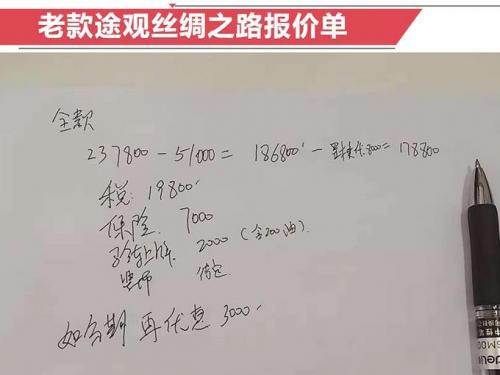 老款途观丝绸之路报价单
全款
237800 - 51000 = 186800 - 置换优8000 = 178800
税: 19800
保险. 7000
验车上牌. 2000 (含200油).
装饰 待定
如分期 再优惠 3000